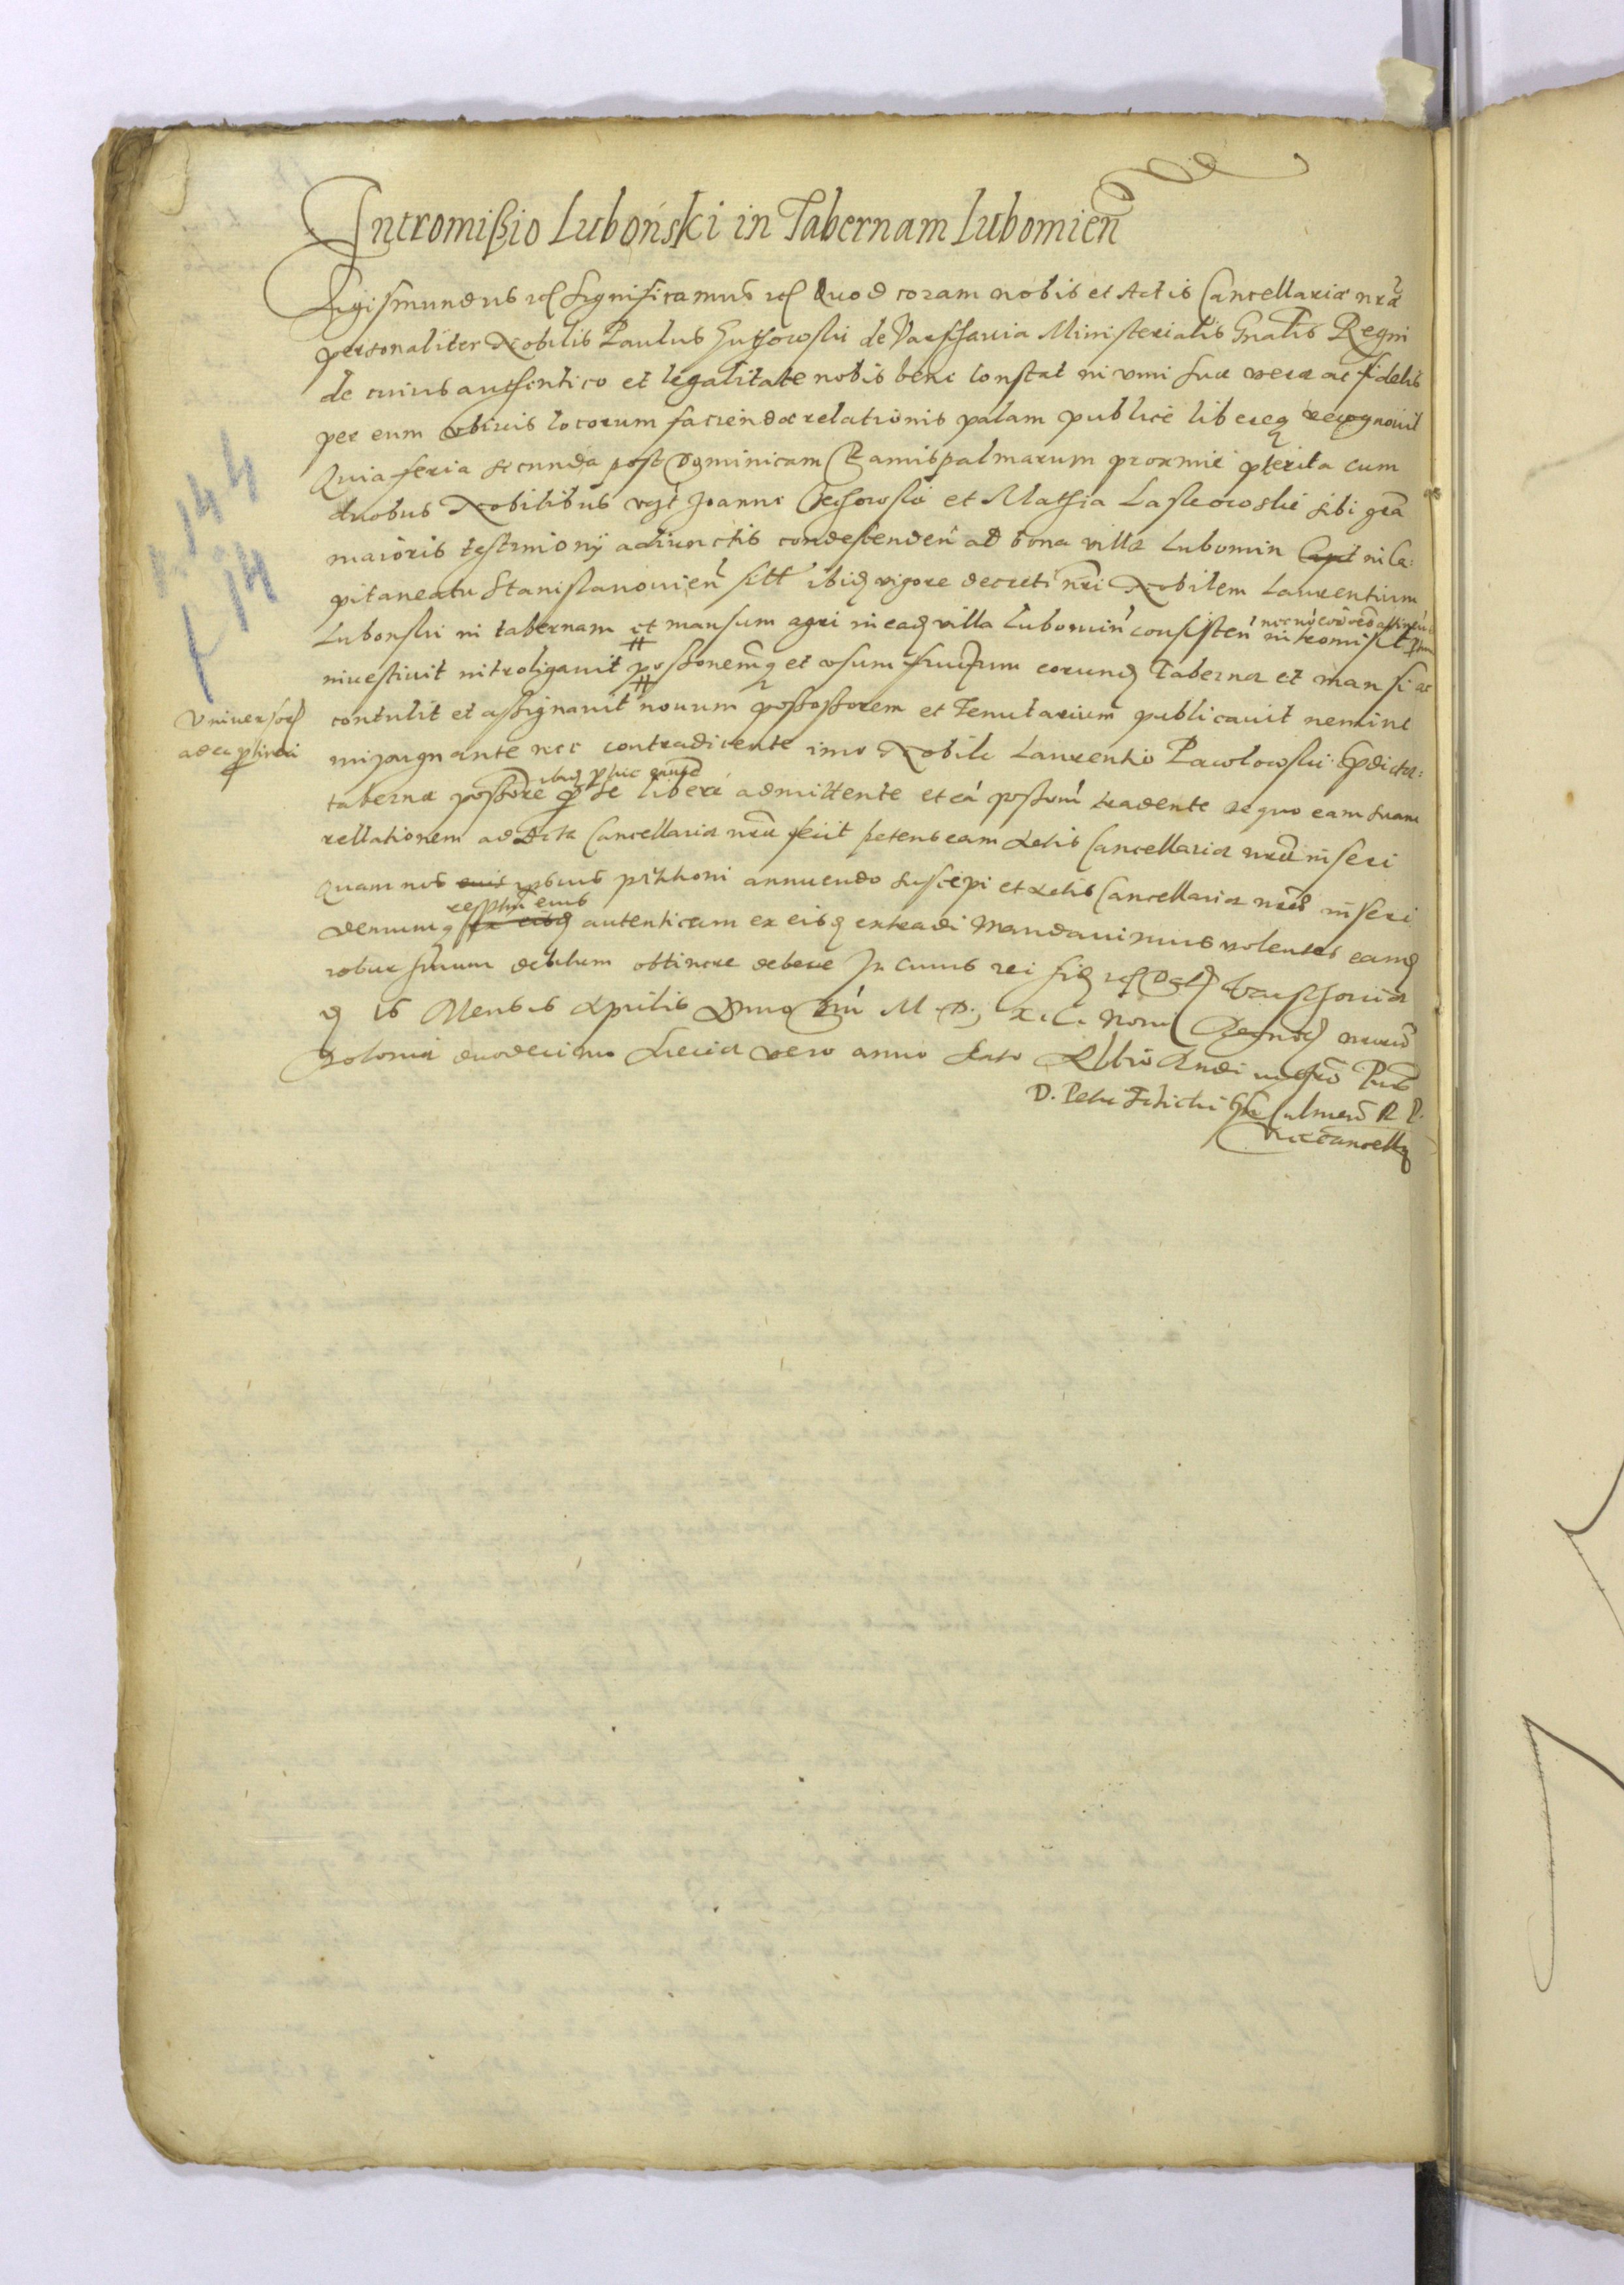 Intromißio Lubonski in Tabernam Lubomien
Sigismundus etc Significamus etc Quod coram nobis et Actis Cancellariæ nræ
personaliter Nobilis Paulus de Varschavia Ministerialis Gnalis Regni
de cuius authentico et legalitate nobis bene constat in vim suæ veræ ac fidelis
per eum ubivis locorum faciendæ relationis palam publice libereq recognovit
Quia feria secunda post Dominicam Ramispalmarum proxime pterita cum
duobus Nobilibus vgt Joanne et Mathia Laskowski sibi gra
maioris testimonij adiunctis condescenden ad bona villæ Lubomin Capt in Ca:
pitaneatu Stanislavovien sitt ibid vigore decreti nri Nobilem Laurentium
Lubonski in tabernam et mansum agri in ead villa Lubomin consisten intromisit
investivit introligavit possonemq et usum fructum eorund Tabernæ et mansi ac
Universos
adea ptineri
contulit et assignavit novum possessorem et Tenutarium publicavit nemine
impugnante nec contradicente imo Nobile Laurentio Pawlowski
tabernæ possore p se libere admittente et ea posson tradente de quo eam suam
rellationem ad Acta Cancellariæ nræ fecit petens eam Actis Cancellariæ nræ inseri
Quam nos eius ptitioni annuendo suscepi et Actis Cancellariæ nræ inseri
demumq ex eisd autenticum ex eisd extradi mandavimus volentes eamd
robur firmum debitum obtinere debere In cuius rei fid etc Dat Varschoviæ
d 16 Mensis Aprilis Anno Dni M. D. X.C. Noni Regnor nrorum
Poloniæ duodecimo Sueciæ vero anno Sexto
D. Petri Tilicki Culmen R P.
Vicecancell
144
14